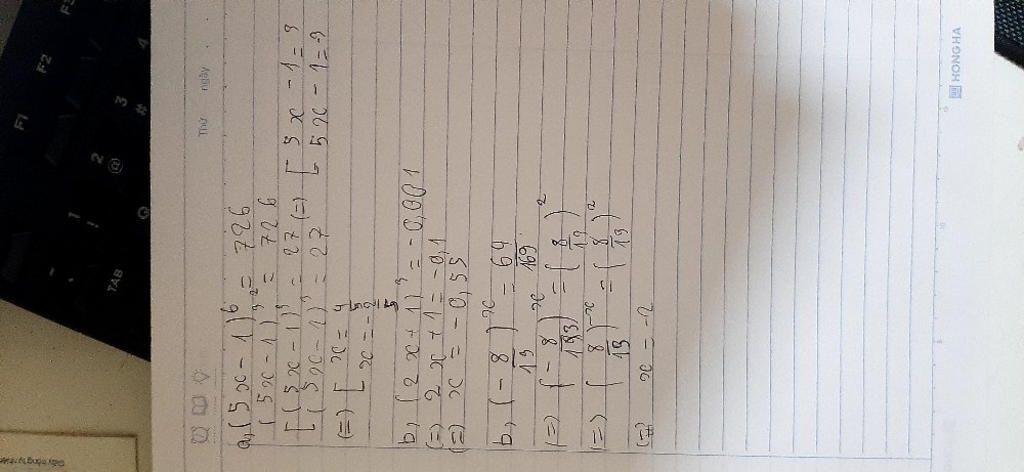 Thứ ngày
a, (5x - 1)^6 = 726
(5x - 1)^{3·2} = 726
[ (5x - 1)^3 = 27 (=) [ 5x - 1 = 3
[ (5x - 1)^3 = 27 [ 5x - 1 = 3
(=) [ x = 4/5
[ x = -2/5
b, (2x + 1)^3 = -0,001
(=) 2x + 1 = -0,1
(=) x = -0,55
b, (-8/13)^x = 64/169
(=) (-8/13)^x = (8/13)^2
(=) (8/13)^{-x} = (8/13)^2
(=) x = -2
HONG HA
F1 F2 F3
1 2 @ 3 # 4
TAB Q